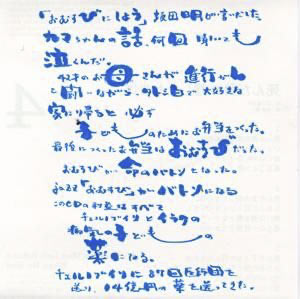 「おむすびにしよう」坂田明が言いだした。
カマちゃんの話、何回聴いても
泣くんだ。
のお母さんが進行がん
と闘いながら、大好きな
家に帰ると必ず
子どものためにお弁当をつくった。
最後につくったお弁当はおむすびだった。
おむすびが命のバトンとなった。
「おむすび」がバトンになる
このCDの利益はすべて
チェルノブイリとイラクの
病気の子どもの
薬になる。
チェルノブイリに87回医師団を
送り、14億円の薬を送ってきた。